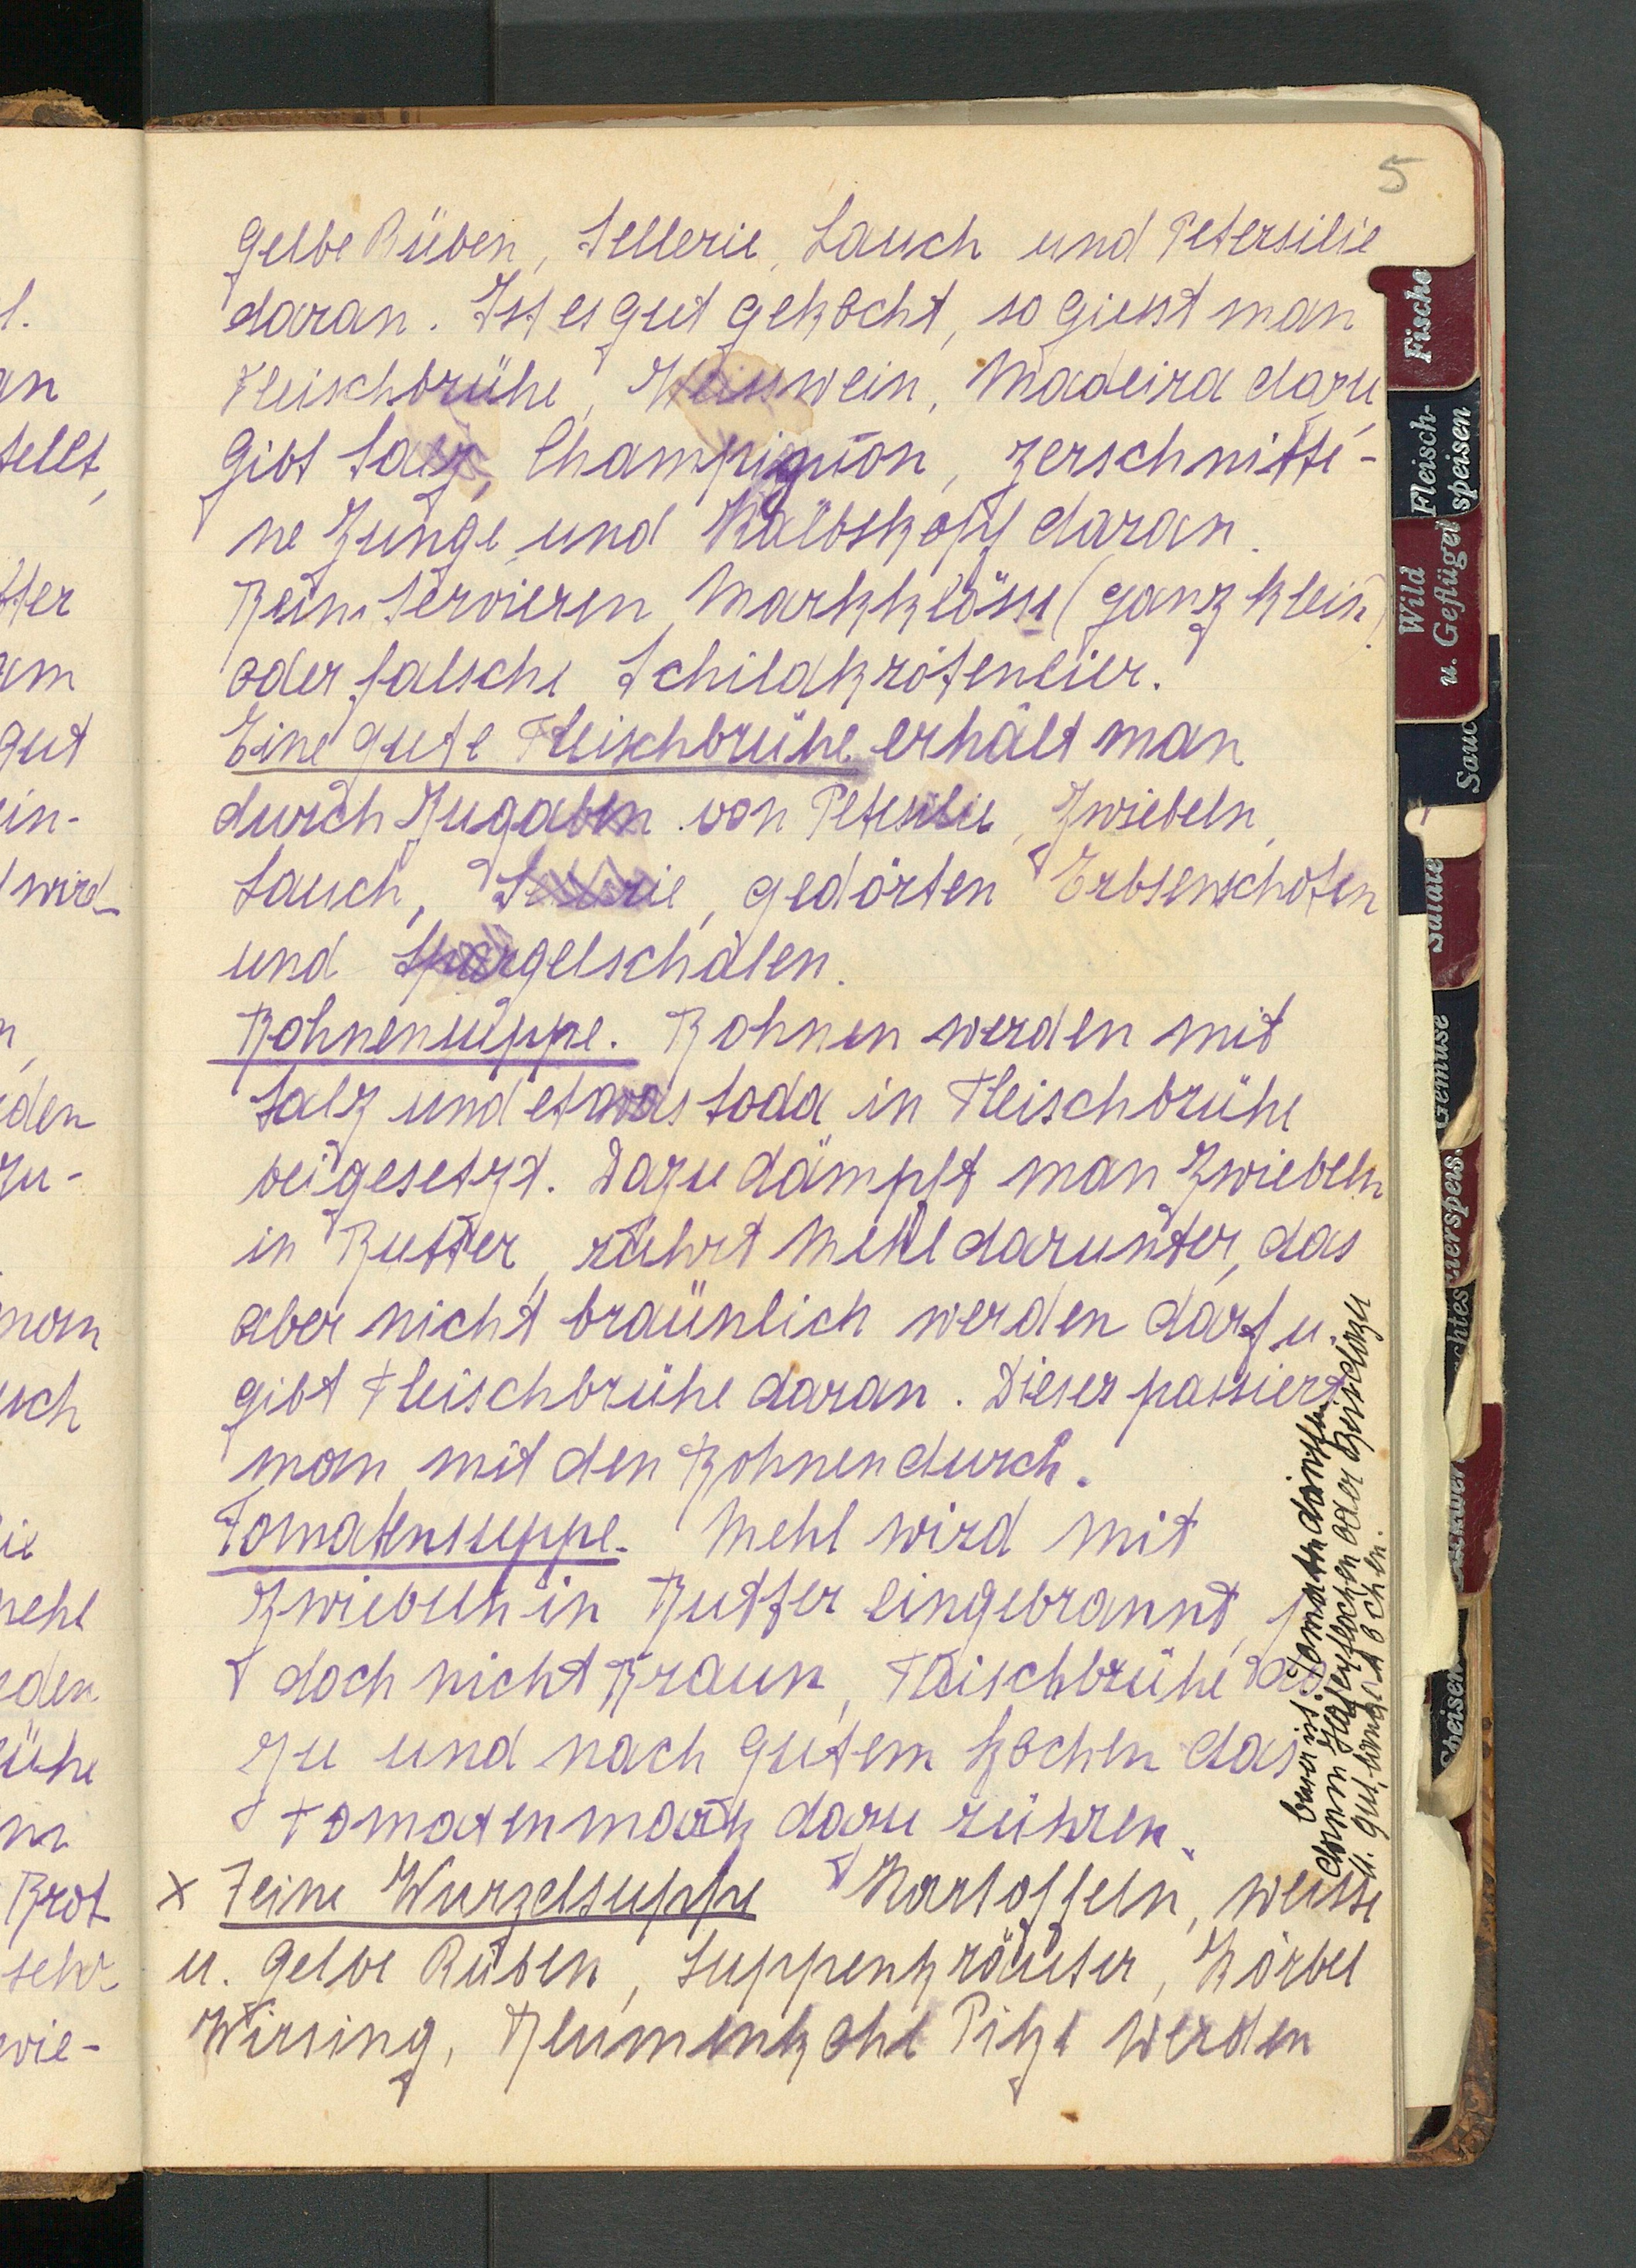 5
gelbe Rüben, Sellerie, Lauch und Petersilie
daran. Ist es gut gekocht, so giesst man
Fleischbrühe, Weisswein, Madeira dazu
gibt Salz, Champignon, zerschnitte-
ne Zunge und Kalbskopf daran.
Beim Servieren Markklösse (ganz klein)
oder falsche Schildkröteneier.
Eine gute Fleischbrühe erhält man
durch Zugaben von Petersilie, Zwiebeln,
Lauch, Sellerie, gedörten Erbsenschoten
und Spargelschalen.
Bohnensuppe. Bohnen werden mit
Salz und etwas Soda in Fleischbrühe
beigesetzt. Dazu dämpft man Zwiebeln
in Butter, rührt Mehl darunter, das
aber nicht bräunlich werden darf u.
gibt Fleischbrühe daran. Dieses passiert
man mit den Bohnen durch.
Tomatensuppe. Mehl wird mit
Zwiebeln in Butter eingebrannt,
doch nicht Braun, Fleischbrühe da
zu und nach gutem kochen das
Tomatenmark dazu rühren.
x Feine Wurzelsuppe Kartoffeln, weisse
u. gelbe Rüben, Suppenkräuter, Körbel
Wirsing, Blumenkohl Pilze werden
besser ist: Tomaten dämpfen
dann Haferflocken oder Reis dazu
u. gut kochen.
Fische
Fleisch-
speisen
Wild
u. Geflügel
Sauc
Salate
Gemüse
l.
an
tellt,
gut
ein-
wird
den
zu-
ehl
eden
ühe
Brot
sehr
wie-